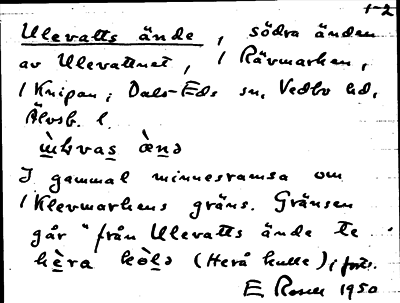 1-2
Ulevatts ände, södra änden
av Ulevattnet, i Rävmarken,
i Knipan, Dals-Eds sn, Vedbo hd,
Älvsb. l.
ànd
I gammal minnesramsa om
i Klevmarkens gräns. Gränsen
går "från Ulevatts ände te
hèra kòlə (Herå kulle), forts.
E Rosell 1950